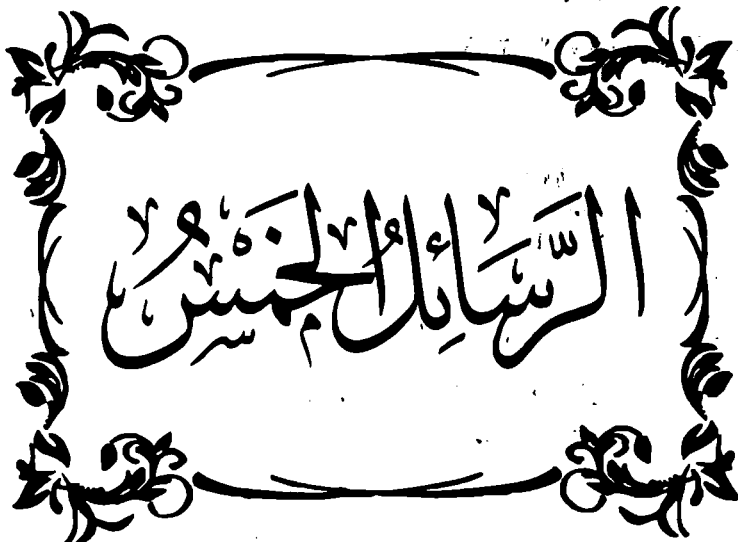 الرَّسَائِلُ الْخَمْسُ